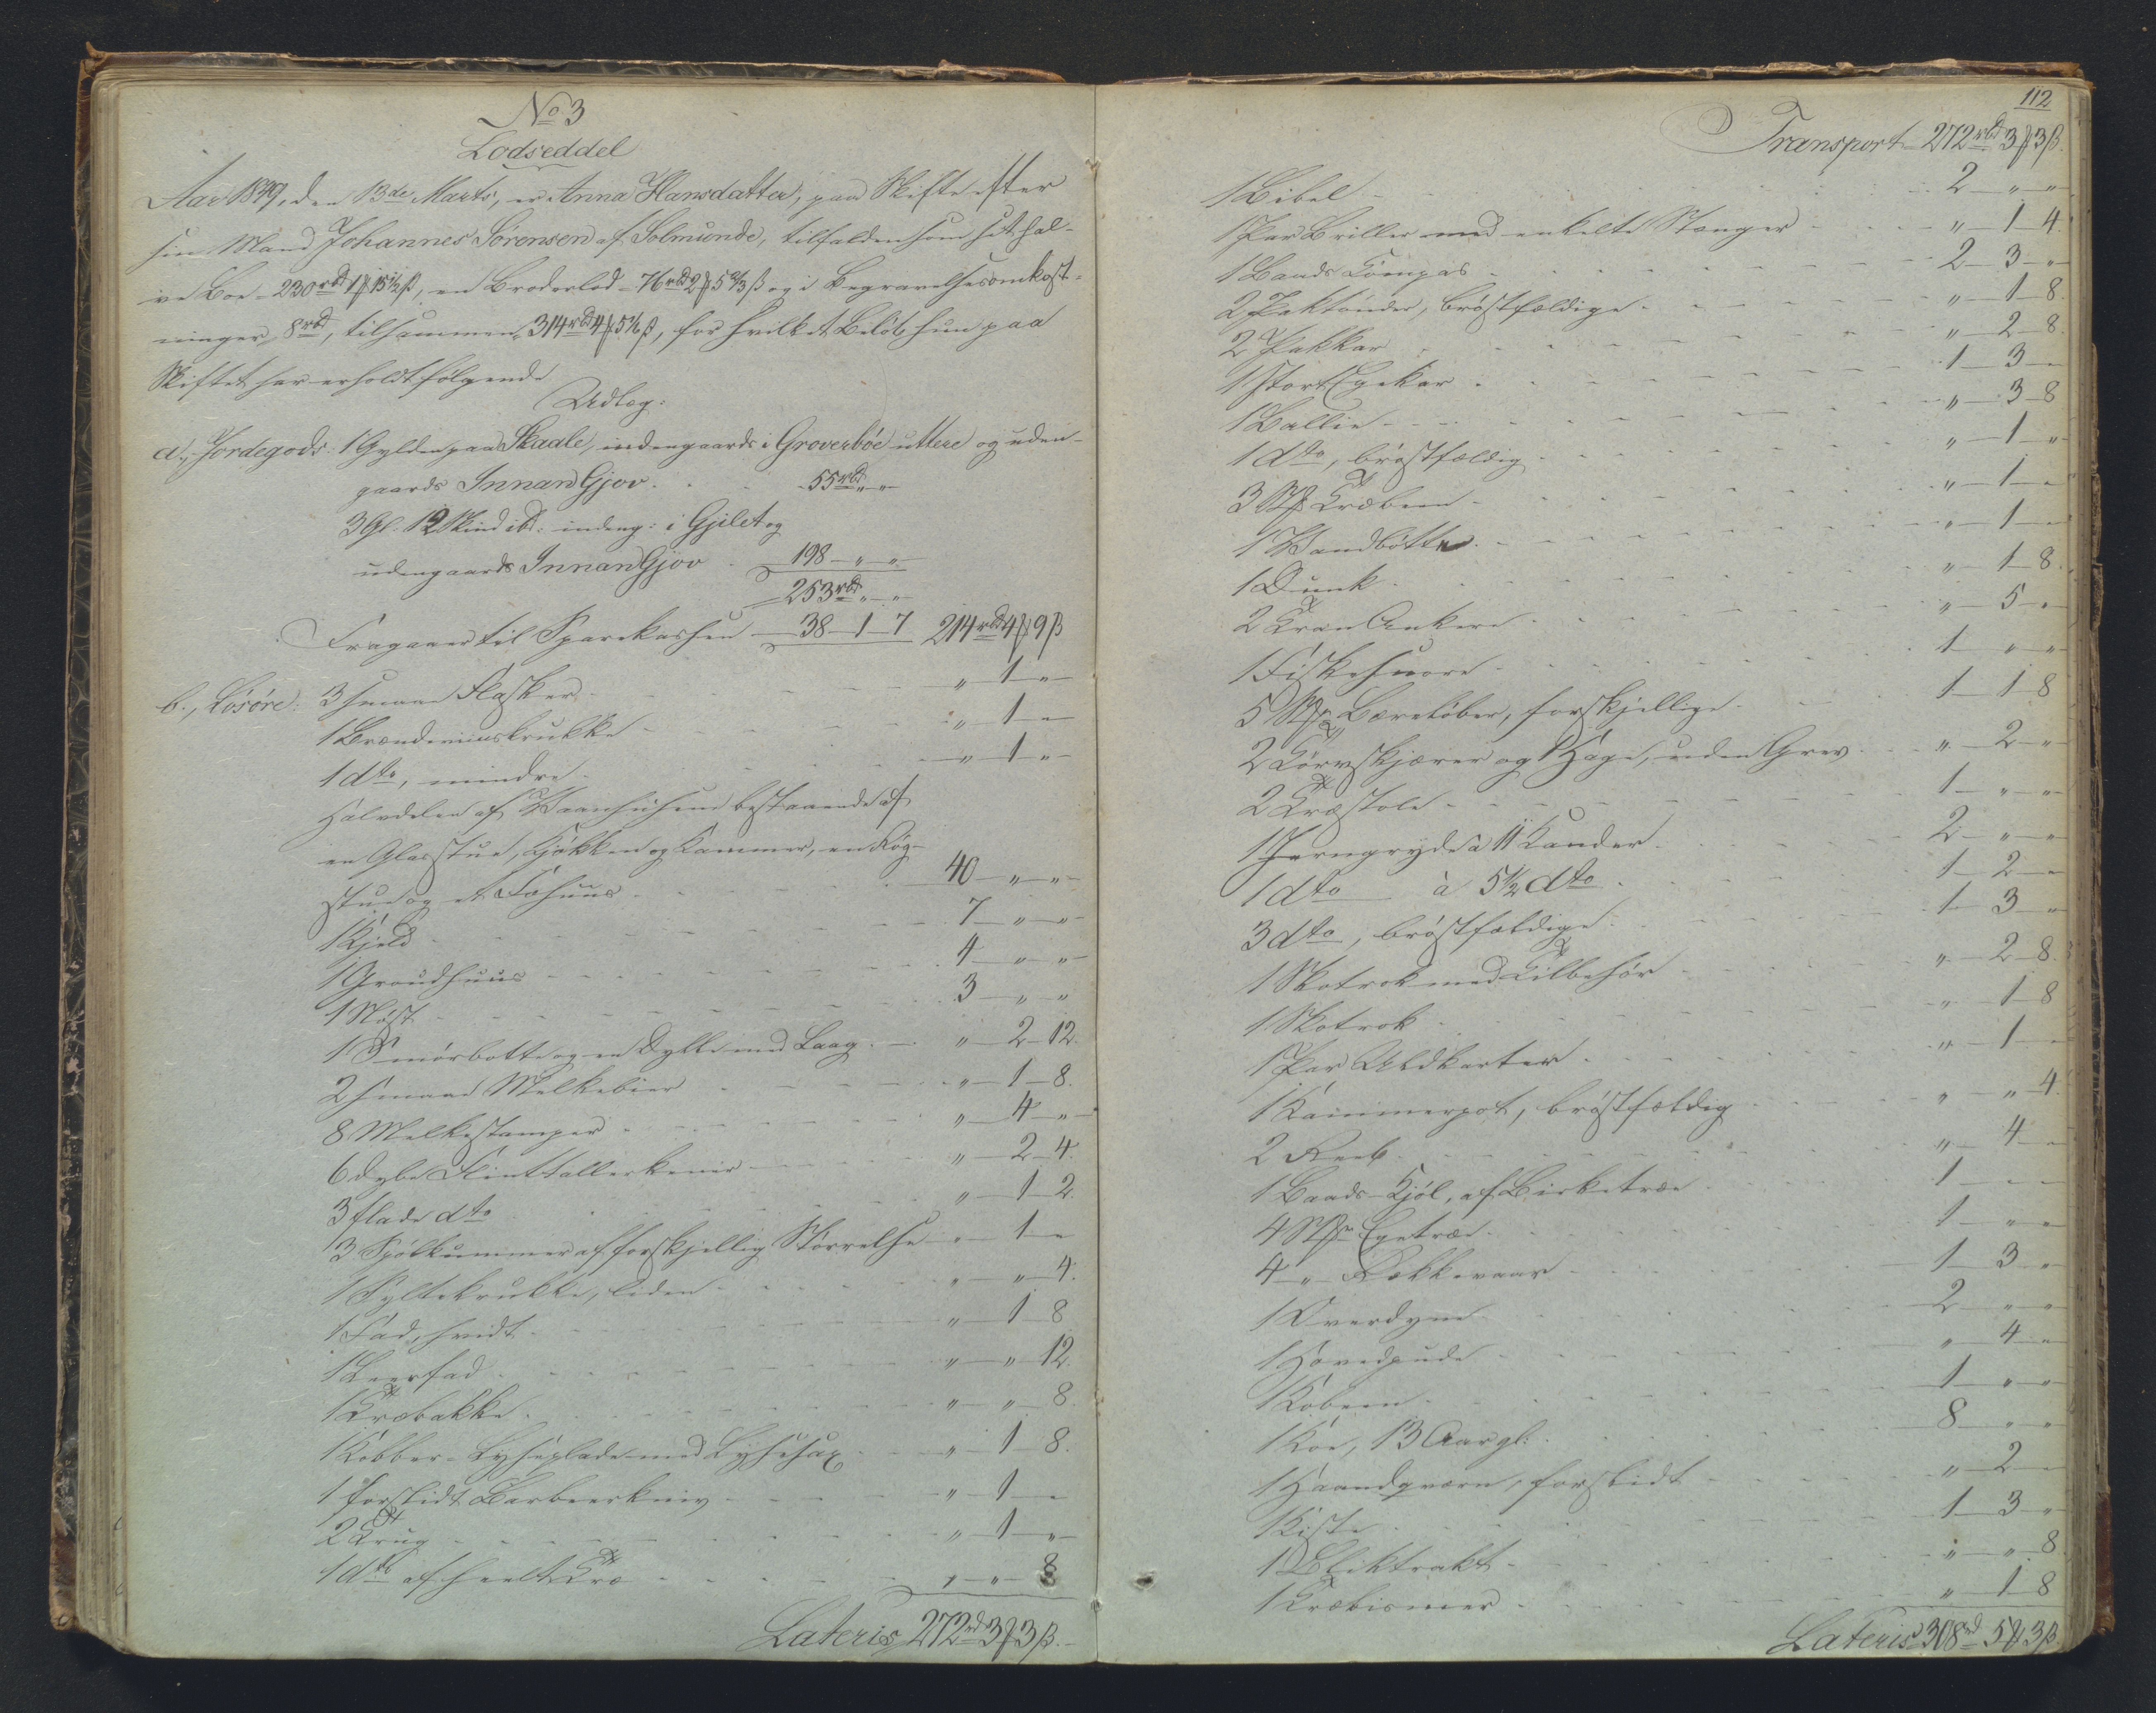 No 3
Lodseddel
Aar 1849, den 13de Marts, er Anna Hansdatter, paa Skifte efter
sin Mand Johannes Sørensen af Solmunde, tilfalden som sit hal-
ve Boe - 230rbd 1 ℔ 15½ β, en Broderlod - 76rbd 2 ℔ 5⅔ β og i Begravelsesomkost-
ninger 8rbd, tilsammen 314rbd 4 ℔ 5 1/6 β, for hvilket Beløb hun paa
Skiftet har erholdt følgende
Udlæg:
a., Jordegods: 1 Gylden paa Skaale, indengaards i Groverbøe uttere og uden-
gaards Innan Gjov . . 55rbd " "
3 Gl: 12 Skind ibd: indeng: i Gjilet og
udengaards Innan Gjov . 198 " "
253rbd " "
Fragaaer til Sparekassen 38 1 7 214rbd 4 ℔ 9 β
b., Løsøre: 3 smaae Flasker " 1 "
1 Brændeviinskrukke " 1 "
1 dto, mindre " 1 "
Halvdelen af Vaanhusene bestaaende af
en Glasstue, Kjøkken og Kammer, en Røg-
stue og et Fæhuus 40 " "
1 Kjeld 7 " "
1 Groudhuus 4 " "
1 Nøst 3 " "
1 Smørbøtte og en Dylle med Laag " 2 12
2 smaae Melkebier " 1 8
8 Melkestamper " 4 "
6 dybe Flinttallerkener " 2 4
3 flade dto " 1 2
3 Spølkummer af forskjellig Størrelse " 1 "
1 Syltekrukke, liden " " 4
1 Fad, hvidt " 1 8
1 Leerfad " " 12
1 Træbakke " " 8
1 Kobber-Lyseplade med Lysesax " 1 8
1 forslidt Barbeerkniv " 1 "
2 Trug " 1 "
1 dto af heelt Træ " " 8
Lateris 272rd 3 ℔ 3 β
112
Transport 272rbd 3 ℔ 3 β
1 Bibel 2 " "
1 Par Briller med enkelte Stænger " 1 4
1 Baads Compas 2 3 "
2 Saktønder, brøstfældige " 1 8
2 Sakkar " 2 8
1 stort Egekar 1 3 "
1 Ballie " 3 8
1 dto, brøstfældig " 1 "
3 Stk Træbeen " 1 "
1 Vandbøtte " 1 "
1 Dunk " 1 8
2 Træe Ankere " 5 "
1 Fiskesnøre 1 " "
5 Stkr Bæreløber, forskjellige 1 1 8
2 Tørvskjærer og 1 Hage, uden Grev " 2 "
2 Træstole 1 " "
1 Jerngryde à 11 Kander 2 " "
1 dto à 5½ dto 1 2 "
3 dto, brøstfældige 1 3 "
1 Skotrok med Tilbehør " 2 8
1 Skotrok " 1 8
1 Par Uldkarter " 1 "
1 Kammerpot, brøstfældig " " 4
2 Reeb " 4 "
1 Baads-Kjøl, af Birketræe 1 " "
4 Stkr Egetræe 1 " "
4 " Rækkevaar 1 3 "
1 Overdyne 2 " "
1 Hovedpude " 4 "
1 Kobeen 1 " "
1 Koe, 13 Aar gl: 8 " "
1 Haandqværn, forslidt " 2 "
1 Kiste 1 3 "
1 Bliktrakt " " 8
1 Træbismer " 1 8
Lateris 308rd 5 ℔ 3 β